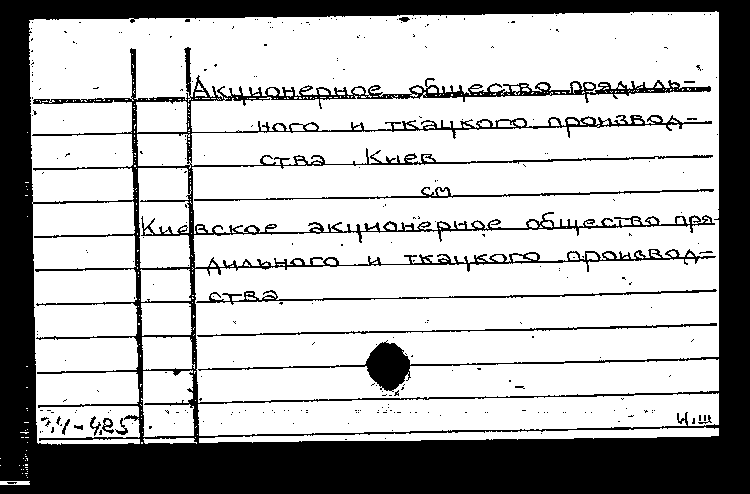 Акционерное общество прядиль-
ного и ткацкого производ-
ства, Киев
см
Киевское акционерное общество пря-
дильного и ткацкого производ-
ства
4-485
И.Ш